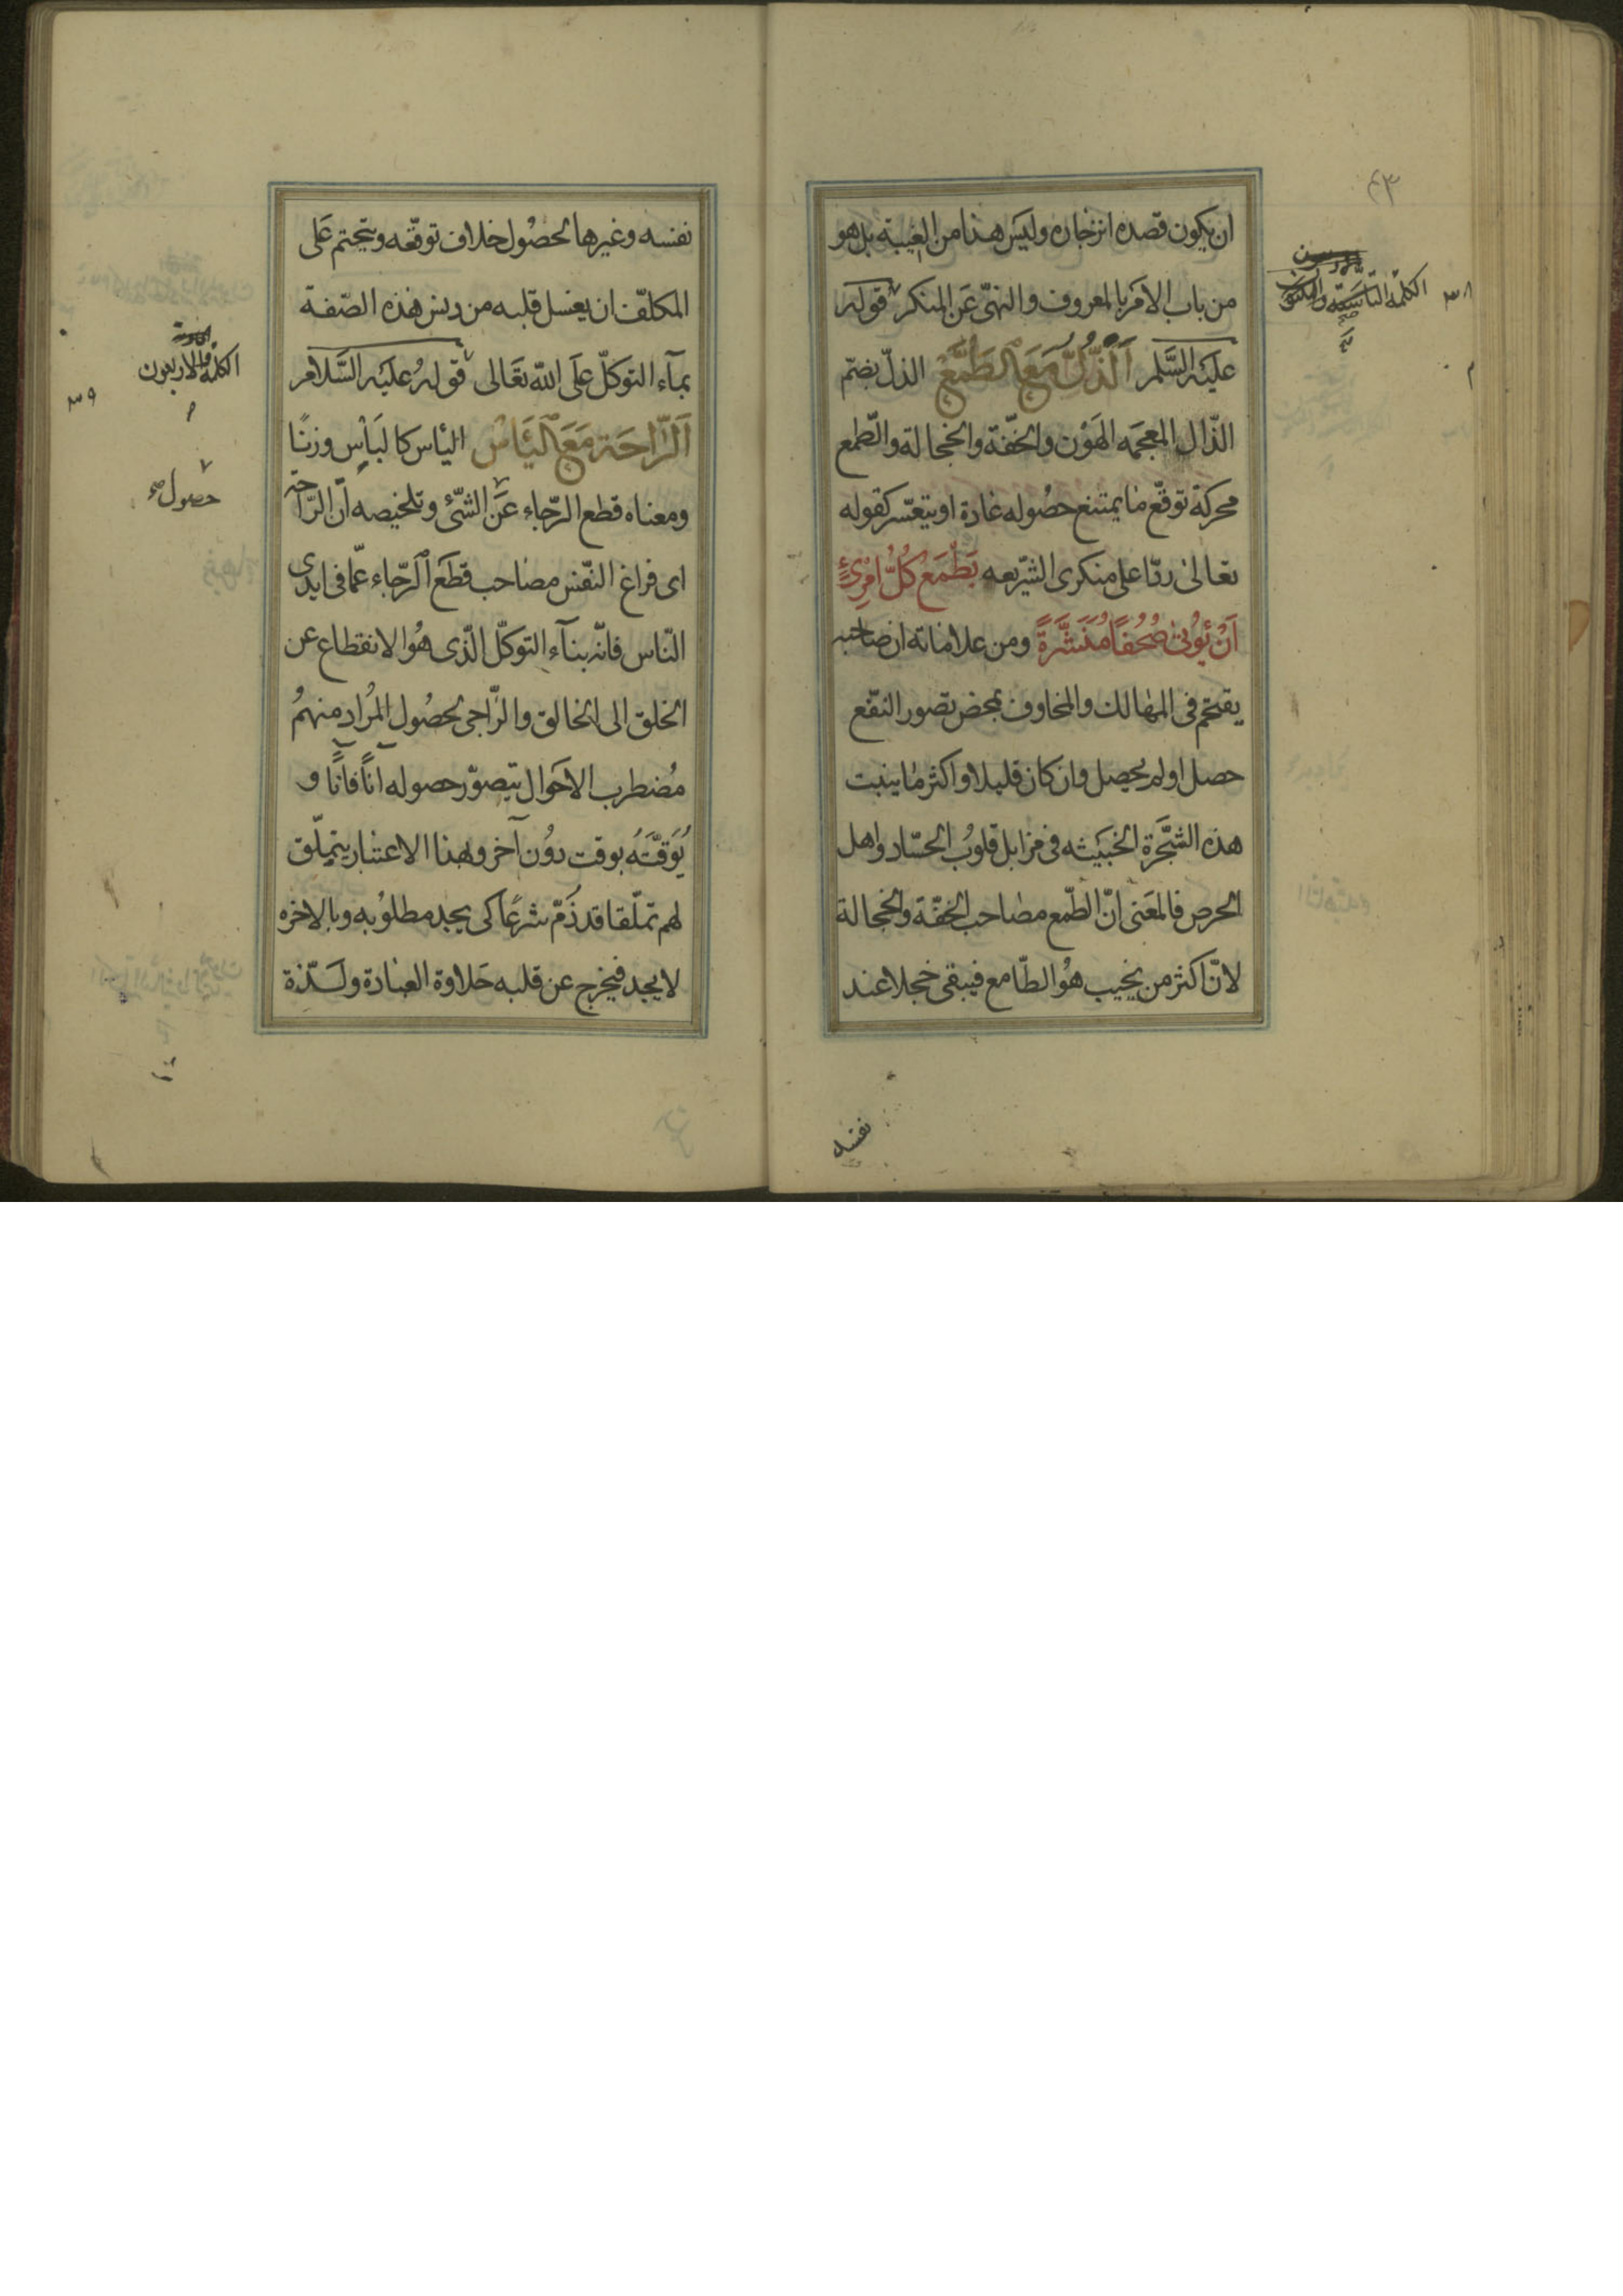 ان يكون قصده انزجاره وليس هذا من الغيبة بل هو
من باب الامر بالمعروف والنهى عن المنكر قوله
عليه السلم اَلذُّلُّ مَعَ الطَّمَعِ الذلّ بضمّ
الذّال المعجمه الهَوْن والخفّة والخجالة والطّمع
محركة توقّع ما يمتنع حصُوله عادة او يتعسّر كقوله
تعالىٰ ردّا على منكرى الشّريعه يَطْمَع كُلُّ امْرِئٍ
اَنْ يُؤتىٰ صُحُفًا مُنَشَّرَةً ومن علاماته ان صاحبه
يقتحم فى المهالك والمخاوف بمحض تصور النفّع
حصل او لم يحصل وان كان قليلا واكثر ما ينبت
هذه الشّجَرة الخَبيثه فى مزابل قلوُب الحسّاد واهل
الحرص فالمعَنى انّ الطّمع مصاحب الخفّة والخجالة
لانّ اكثر من يخيب هُو الطّامع فيبقى خجلا عند
نفسه
٤٣
الكلمة الثامنة والثلثون
٣٨
نفسه وغيرها لحصُول خلاف توقّعه ويتحتم عَلى
المكلّف ان يغسل قلبه من دنس هذه الصّفة
بمآء التوكلّ علَى اللّه تعَالى قوله عليَه السَّلام
اَلرّاحَة مَعَ اليَاْسْ الياس كالبَاْس وزنًا
ومعناه قطع الرّجاء عَن الشّئ وتلخيصه انّ الرّاحة
اى فراغ النّفس مصاحب قطَع الرّجاء عمّا فى ايدى
النّاس فانّه بنآء التوكلّ الّذى هُو الانقطاع عن
الخلق الى الخالق والرّاجى لحصُول المُراد منهمُ
مُضطرب الاحَوال يتصوّر حصوله آنًا فآنًا و
يُوَقّتَهُ بوقت دوُن آخر وبهذا الاعتبار يتملّق
لهم تملّقا قد ذَمّ شرعًا كى يجد مطلوُبه وبالاخره
لا يجد فيخرج عن قلبه حَلاوة العبادة ولَذّة
الكلمة الاربعون
٣٩
حصول صح